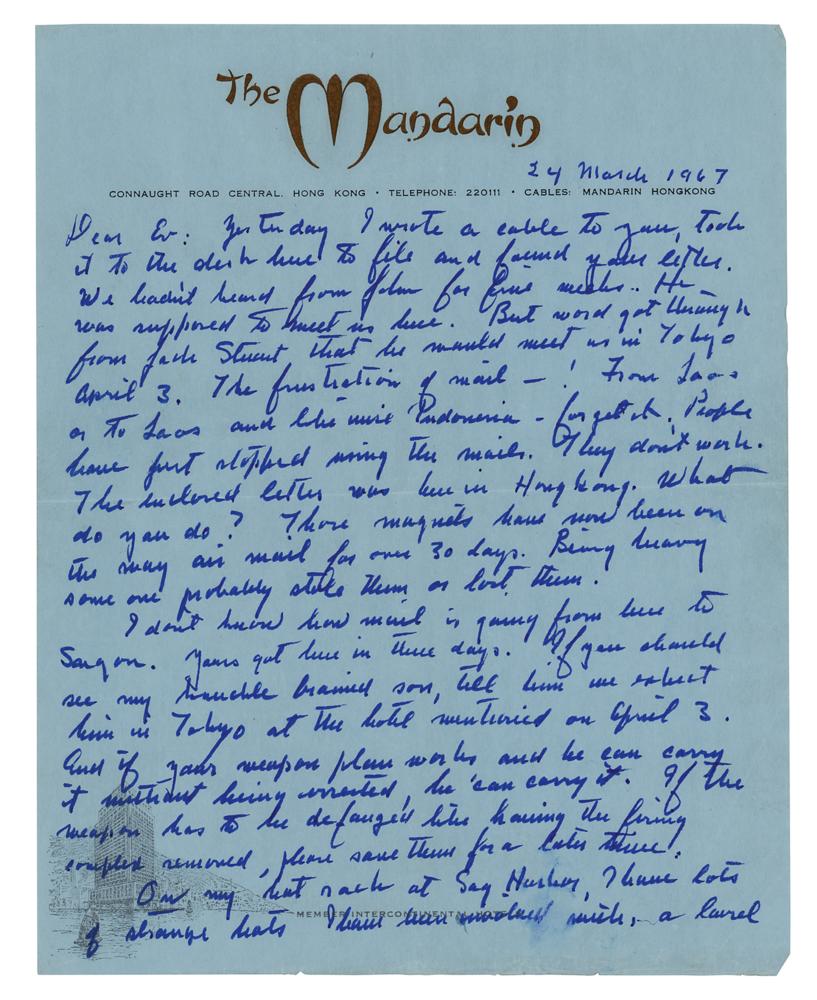 The Mandarin
24 March 1967
CONNAUGHT ROAD CENTRAL, HONG KONG • TELEPHONE: 220111 • CABLES: MANDARIN HONGKONG
Dear Ev: Yesterday I wrote a cable to you, took
it to the desk here to file and found your letter.
We hadn't heard from John for five weeks. He
was supposed to meet us here. But word got through
from Jack Stuart that he would meet us in Tokyo
April 3. The frustration of mail — ! From Laos
or to Laos and likewise Indonesia - forget it. People
have just stopped using the mails. They don't work.
The enclosed letter was here in Hong Kong. What
do you do? Those magnets have now been on
the way air mail for over 30 days. Being heavy
some one probably stole them or lost them.
I don't know how mail is going from here to
Saigon. Yours got here in three days. If you should
see my knuckle brained son, tell him we expect
him in Tokyo at the hotel mentioned on April 3.
And if your weapon plan works and he can carry
it without being arrested, he can carry it. If the
weapon has to be defanged like having the firing
removed, please save them for a later time.
On my hat rack at Sag Harbor, I have lots
MEMBER INTERCONTINENTAL
of strange hats I have been involved with, a laurel